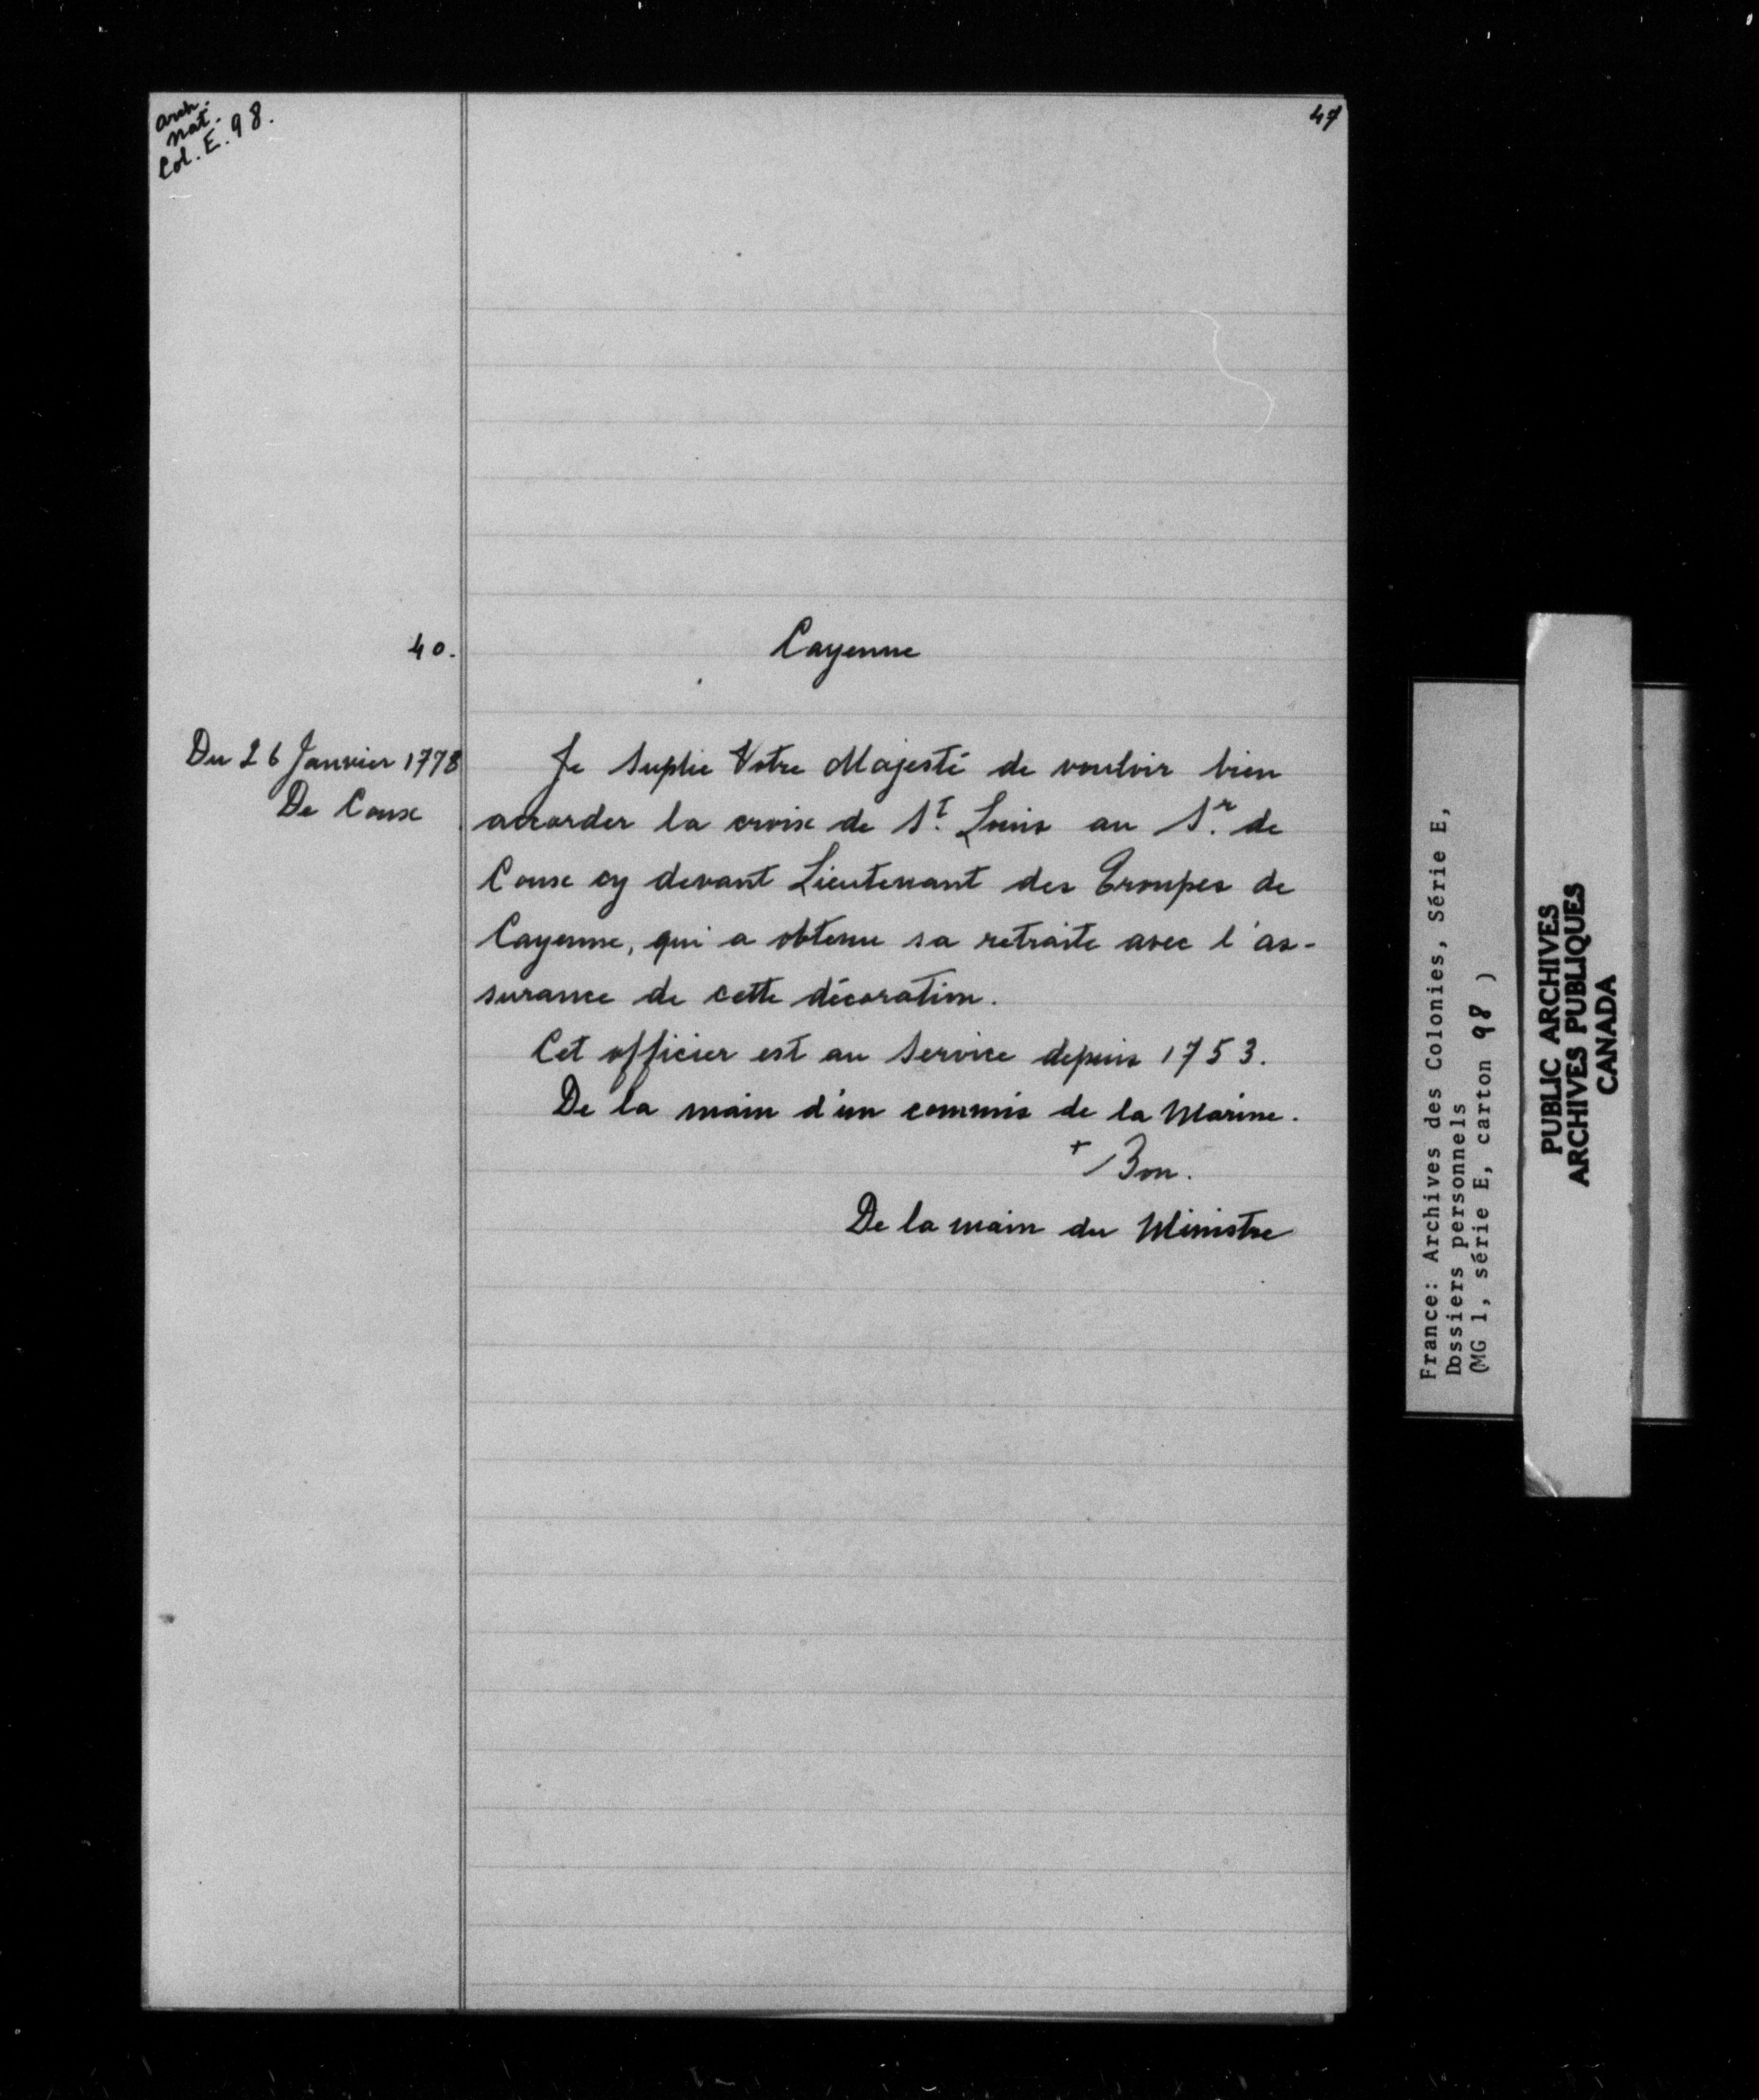 arch.
nat.
Col. E. 98.
47
40.
Cayenne
Du 26 Janvier 1778
De Coux
Je suplie Votre Majesté de vouloir bien
accorder la croix de St. Louis au Sr. de
Coux cy devant Lieutenant des Troupes de
Cayenne, qui a obtenu sa retraite avec l'as-
surance de cette décoration.
Cet officier est au Service depuis 1753.
De la main d'un commis de la Marine.
+ Bon.
De la main du Ministre
France: Archives des Colonies, Série E,
Dossiers personnels
(MG 1, série E, carton 98 )
PUBLIC ARCHIVES
ARCHIVES PUBLIQUES
CANADA